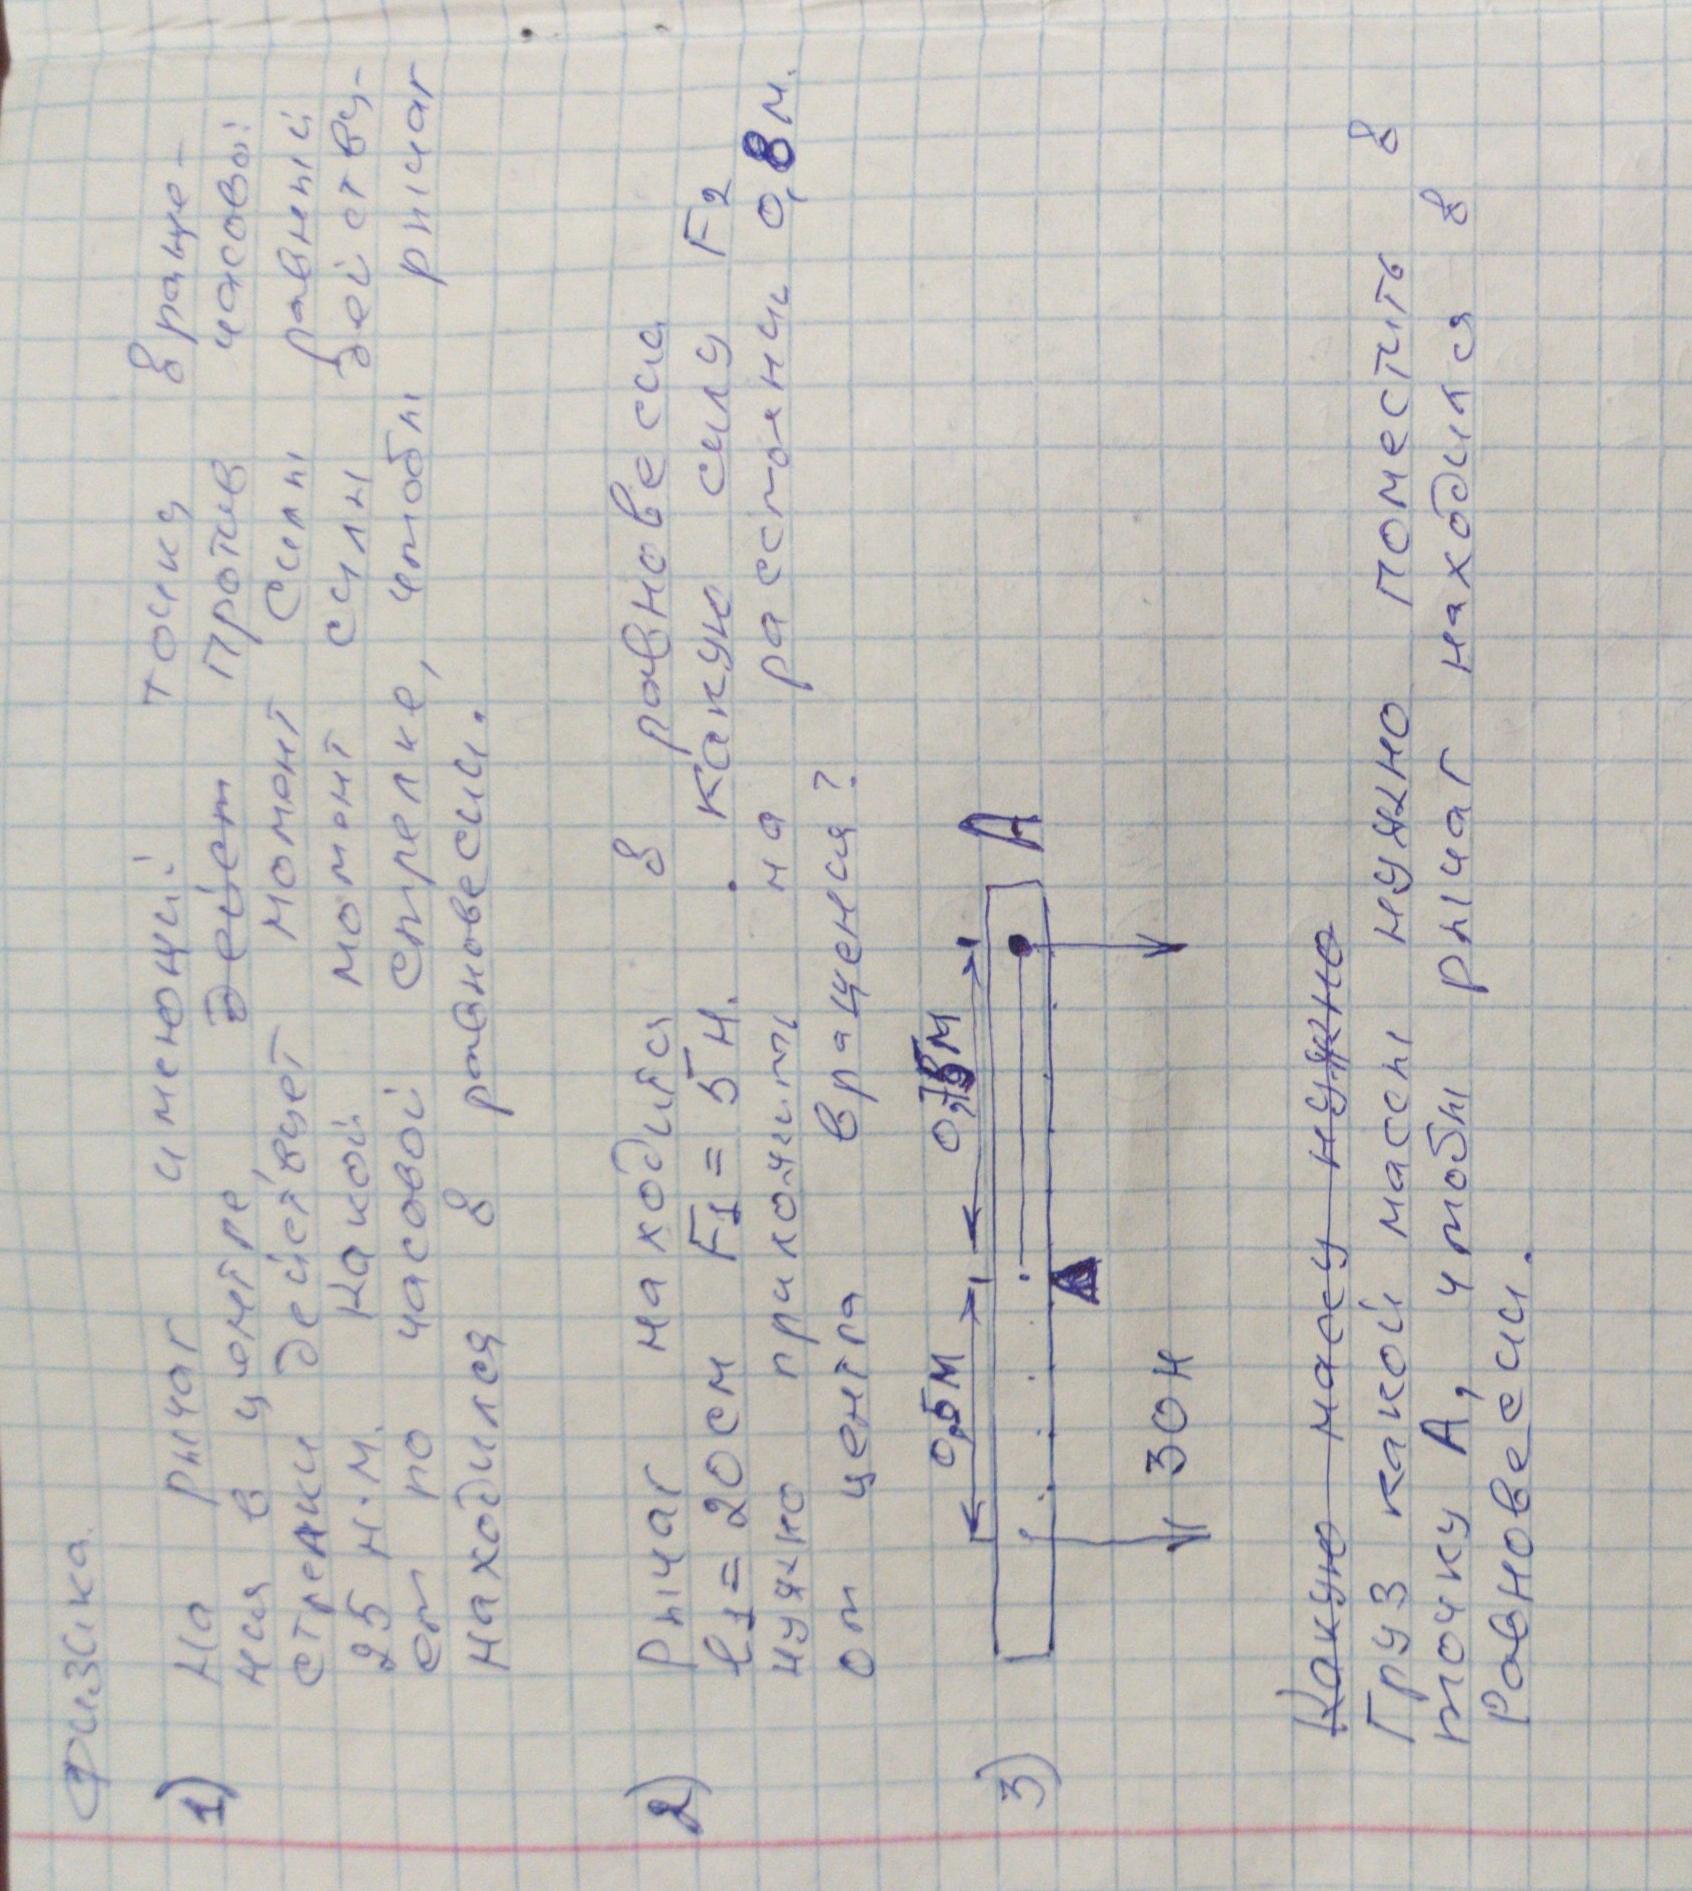 Физика.
1) На рычаг имеющий точку враще-
ния в центре дейст против часовой
стрелки действует момент силы равный
25 Н·м. Какой момент силы действу-
ет по часовой стрелке, чтобы рычаг
находился в равновесии.
2) Рычаг находится в равновесии
l1 = 20см F1 = 5 Н. Какую силу F2
нужно приложить на растоянии 0,8 м.
от центра вращения?
3)
0,5м
А
30 Н
Какую массу нужно
Груз какой массы нужно поместить в
точку А, чтобы рычаг находился в
равновесии.